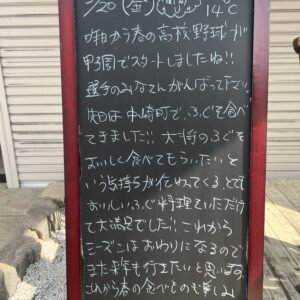 3/20(金) 14℃
昨日から春の高校野球が
甲子園でスタートしましたね!!
選手のみなさんがんばって下さい
先日は中崎町で、ふぐを食べ
てきました!! 大将のふぐを
おいしく食べてもらいたいと
いう気持ちが伝わってくる、とても
おいしいふぐ料理をいただけ
て大満足でした!! これから
シーズンはおわりになるので
また来年も行きたいと思います。
これから春の食べものも楽しみ